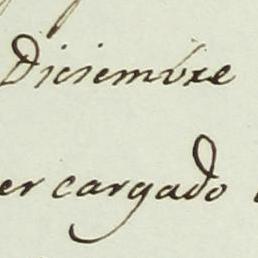 Diciembre
er cargado